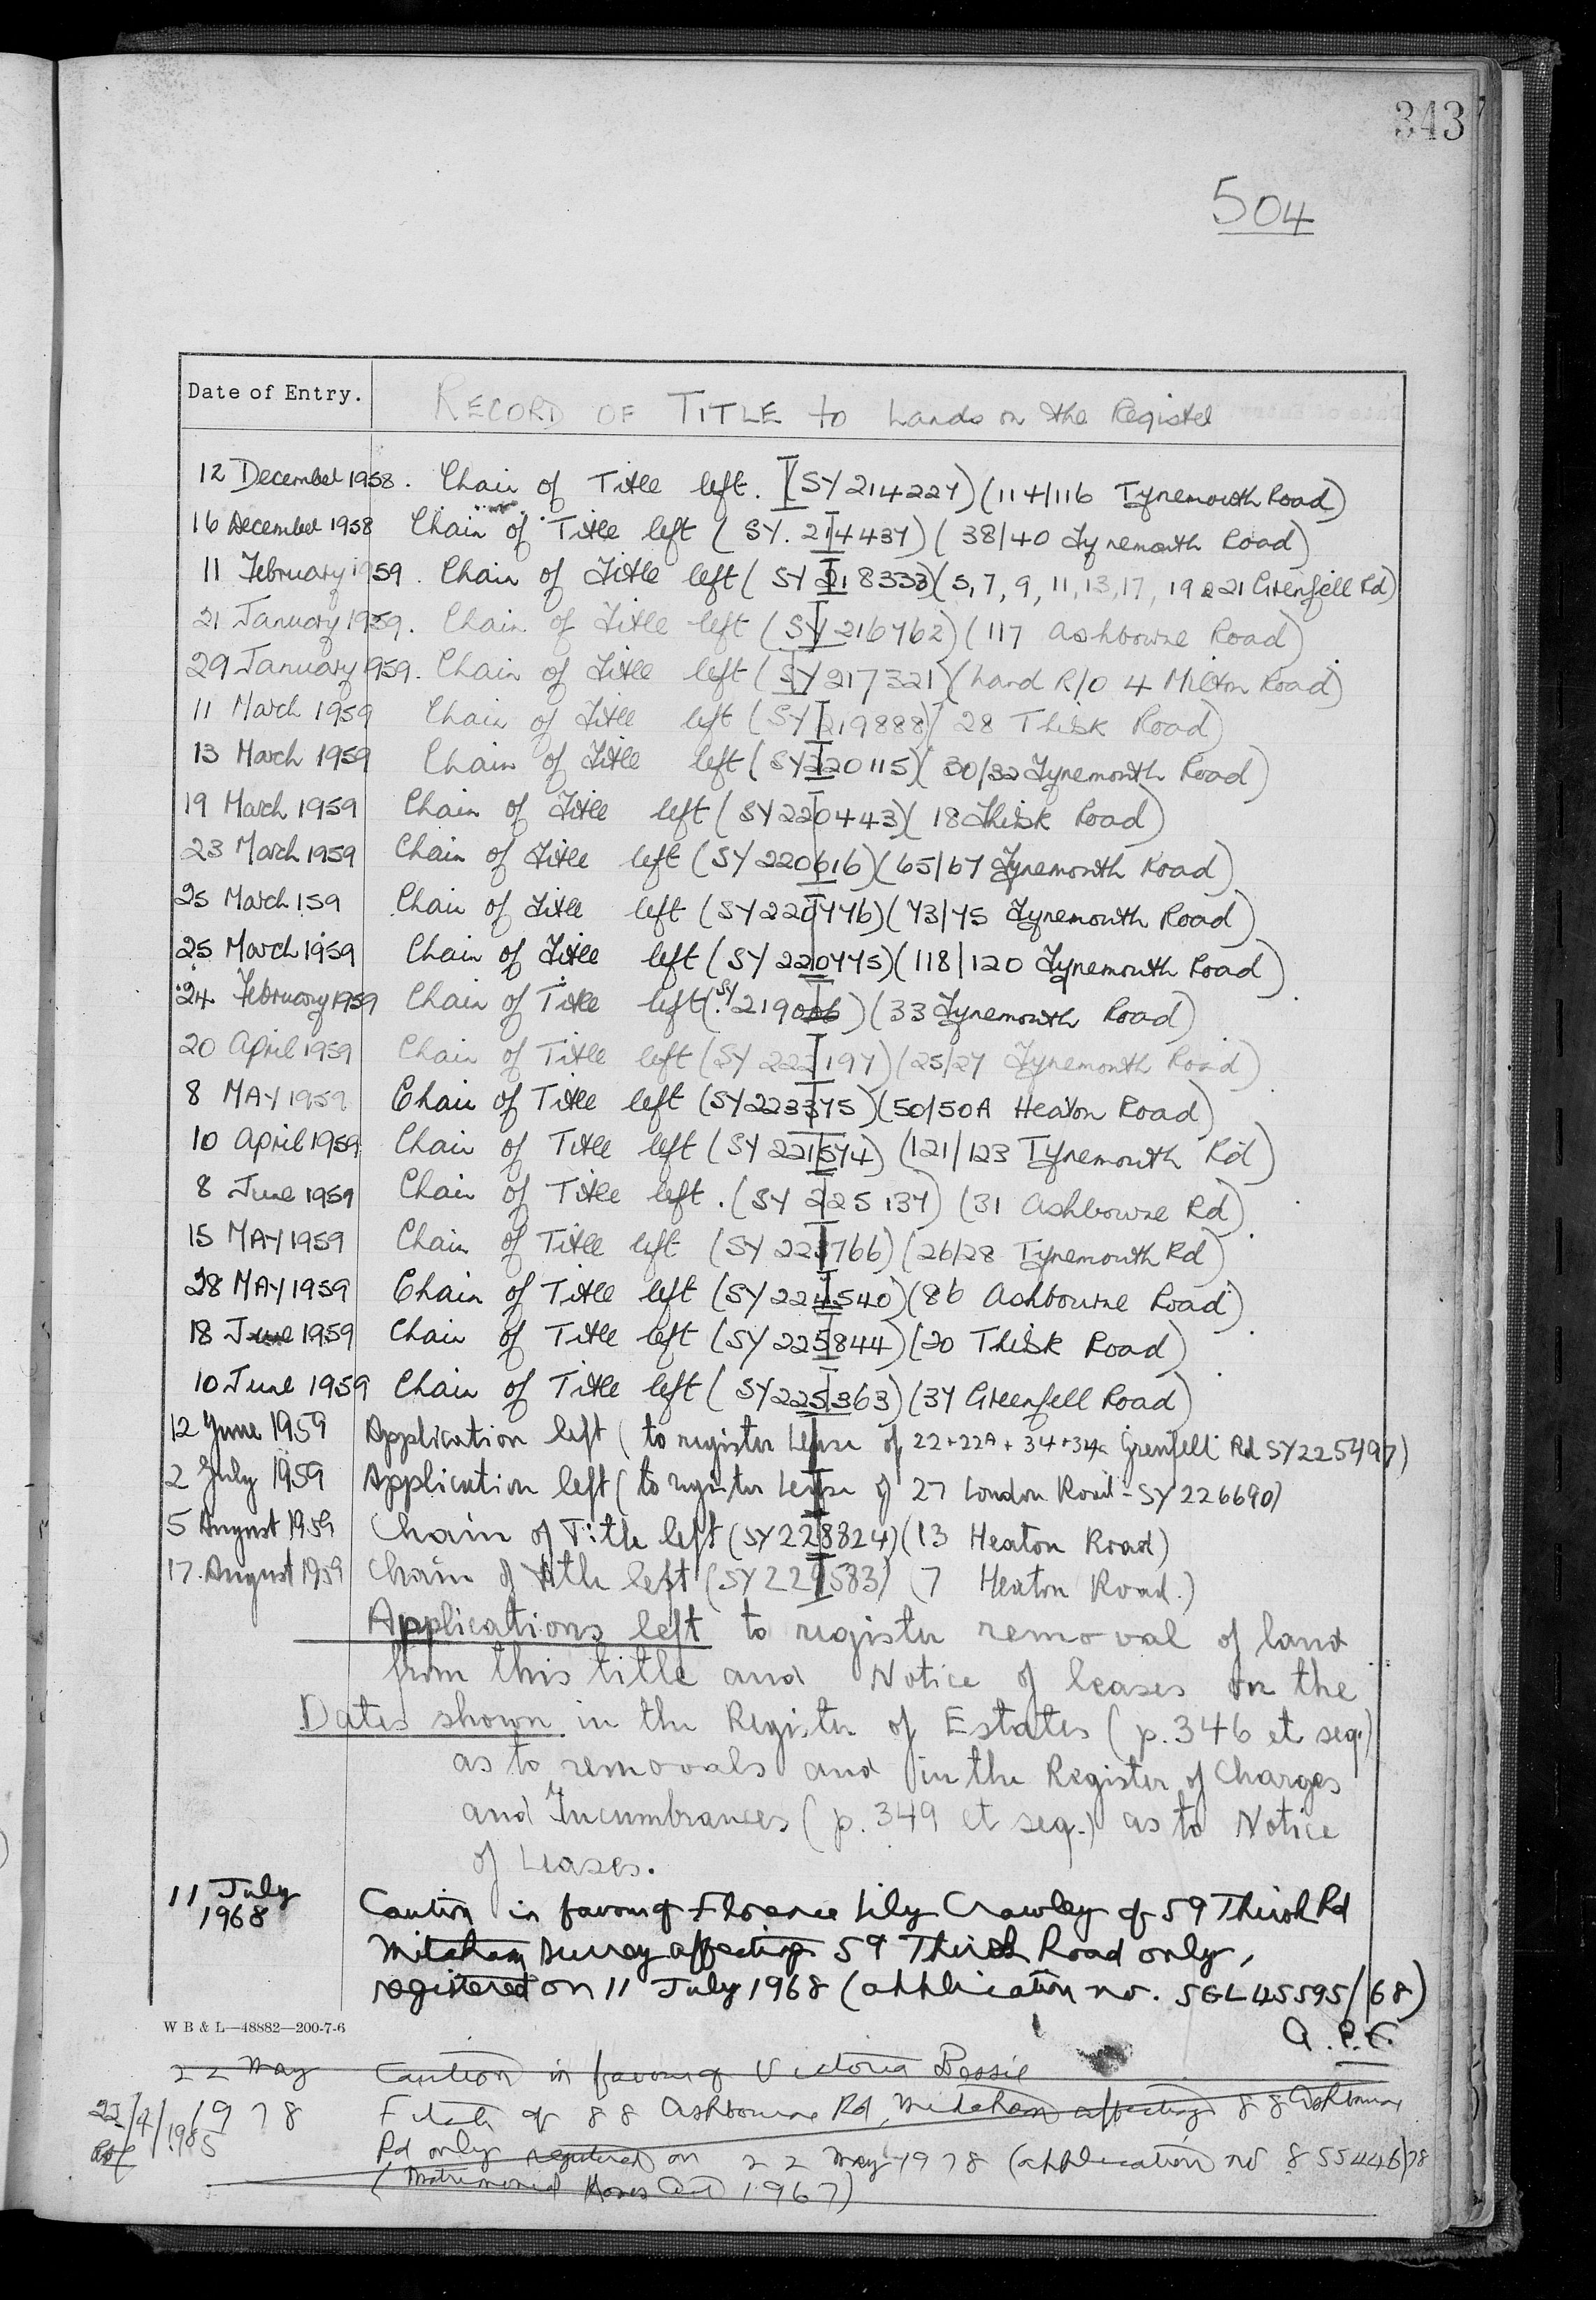 343
504
Date of Entry.
RECORD OF TITLE to Lands on the Register
12 December 1958. Chain of Title left. (SY 214227) (114/116 Tynemouth Road)
16 December 1958 Chain of Title left (SY. 214437) (38/40 Tynemouth Road)
11 February 1959. Chain of Title left (SY 218333) (5, 7, 9, 11, 13, 17, 19 & 21 Grenfell Rd)
21 January 1959. Chain of Title left (SY 216762) (117 Ashbourne Road)
29 January 1959. Chain of Title left (SY 217321) (Land R/O 4 Milton Road)
11 March 1959 Chain of Title left (SY 219888) (28 Thirsk Road)
13 March 1959 Chain of Title left (SY 220115) (30/32 Tynemouth Road)
19 March 1959 Chain of Title left (SY 220443) (18 Thirsk Road)
23 March 1959 Chain of Title left (SY 220616) (65/67 Tynemouth Road)
25 March 159 Chain of Title left (SY 220776) (73/75 Tynemouth Road)
25 March 1959 Chain of Title left (SY 220775) (118/120 Tynemouth Road)
24 February 1959 Chain of Title left (SY 219006) (33 Tynemouth Road)
20 April 1959 Chain of Title left (SY 222197) (25/27 Tynemouth Road)
8 MAY 1959 Chain of Title left (SY 223375) (50/50A Heaton Road)
10 April 1959 Chain of Title left (SY 221574) (121/123 Tynemouth Rd)
8 June 1959 Chain of Title left. (SY 225137) (31 Ashbourne Rd)
15 MAY 1959 Chain of Title left (SY 223766) (26/28 Tynemouth Rd)
28 MAY 1959 Chain of Title left (SY 224540) (86 Ashbourne Road)
18 June 1959 Chain of Title left (SY 225844) (20 Thirsk Road)
10 June 1959 Chain of Title left (SY 225363) (37 Greenfell Road)
12 June 1959 Application left (to register Lease of 22+22A + 34+34a Grenfell Rd SY 225497)
2 July 1959 Application left (to register Lease of 27 London Road - SY 226690)
5 August 1959 Chain of Title left (SY 228824) (13 Heaton Road)
17. August 1959 Chain of title left (SY 229583) (7 Heaton Road.)
Applications left to register removal of land
from this title and Notice of leases on the
Dates shown in the Register of Estates (p. 346 et seq.)
as to removals and in the Register of Charges
and Incumbrances (p. 349 et seq.) as to Notice
of Leases.
11 July 1968 Caution in favour of Florence Lily Crawley of 59 Thirsk Rd
Mitcham Surrey affecting 59 Thirsk Road only,
registered on 11 July 1968 (application no. SGL 45595/68)
W B & L—48882—200-7-6
22 May Caution in favour of Victoria Bessie
1978 of 88 Ashbourne Rd, Mitcham affecting 88 Ashbourne
22/4/1985 Rd only registered on 22 May 1978 (application no 855446/78
(Matrimonial Homes Act 1967)